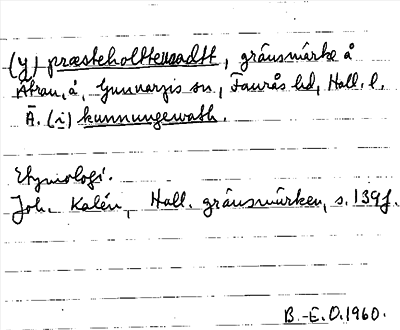 (y) præsteholttewadtt, gränsmärke å
Ätran, å, Gunnarps sn., Faurås hd, Hall. l.
Ä. (i) kunnungewath.
Etymologi.
Joh. Kalén, Hall. gränsmärken, s. 139f.
B.-E.O. 1960.